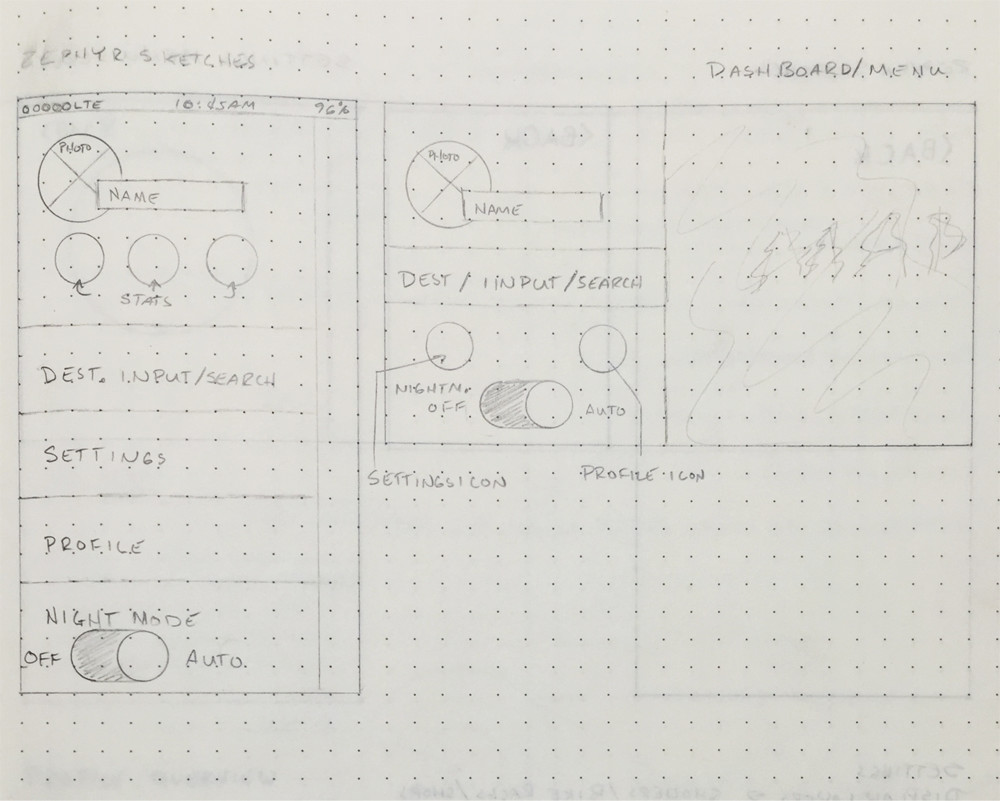 ZEPHYR SKETCHES
DASHBOARD/MENU
00000LTE 10:45AM 96%
PHOTO
NAME
STATS
DEST. INPUT/SEARCH
SETTINGS
PROFILE
NIGHT MODE
OFF AUTO
PHOTO
NAME
DEST/IINPUT/SEARCH
NIGHTM.
OFF AUTO
SETTINGS ICON
PROFILE ICON
MAP